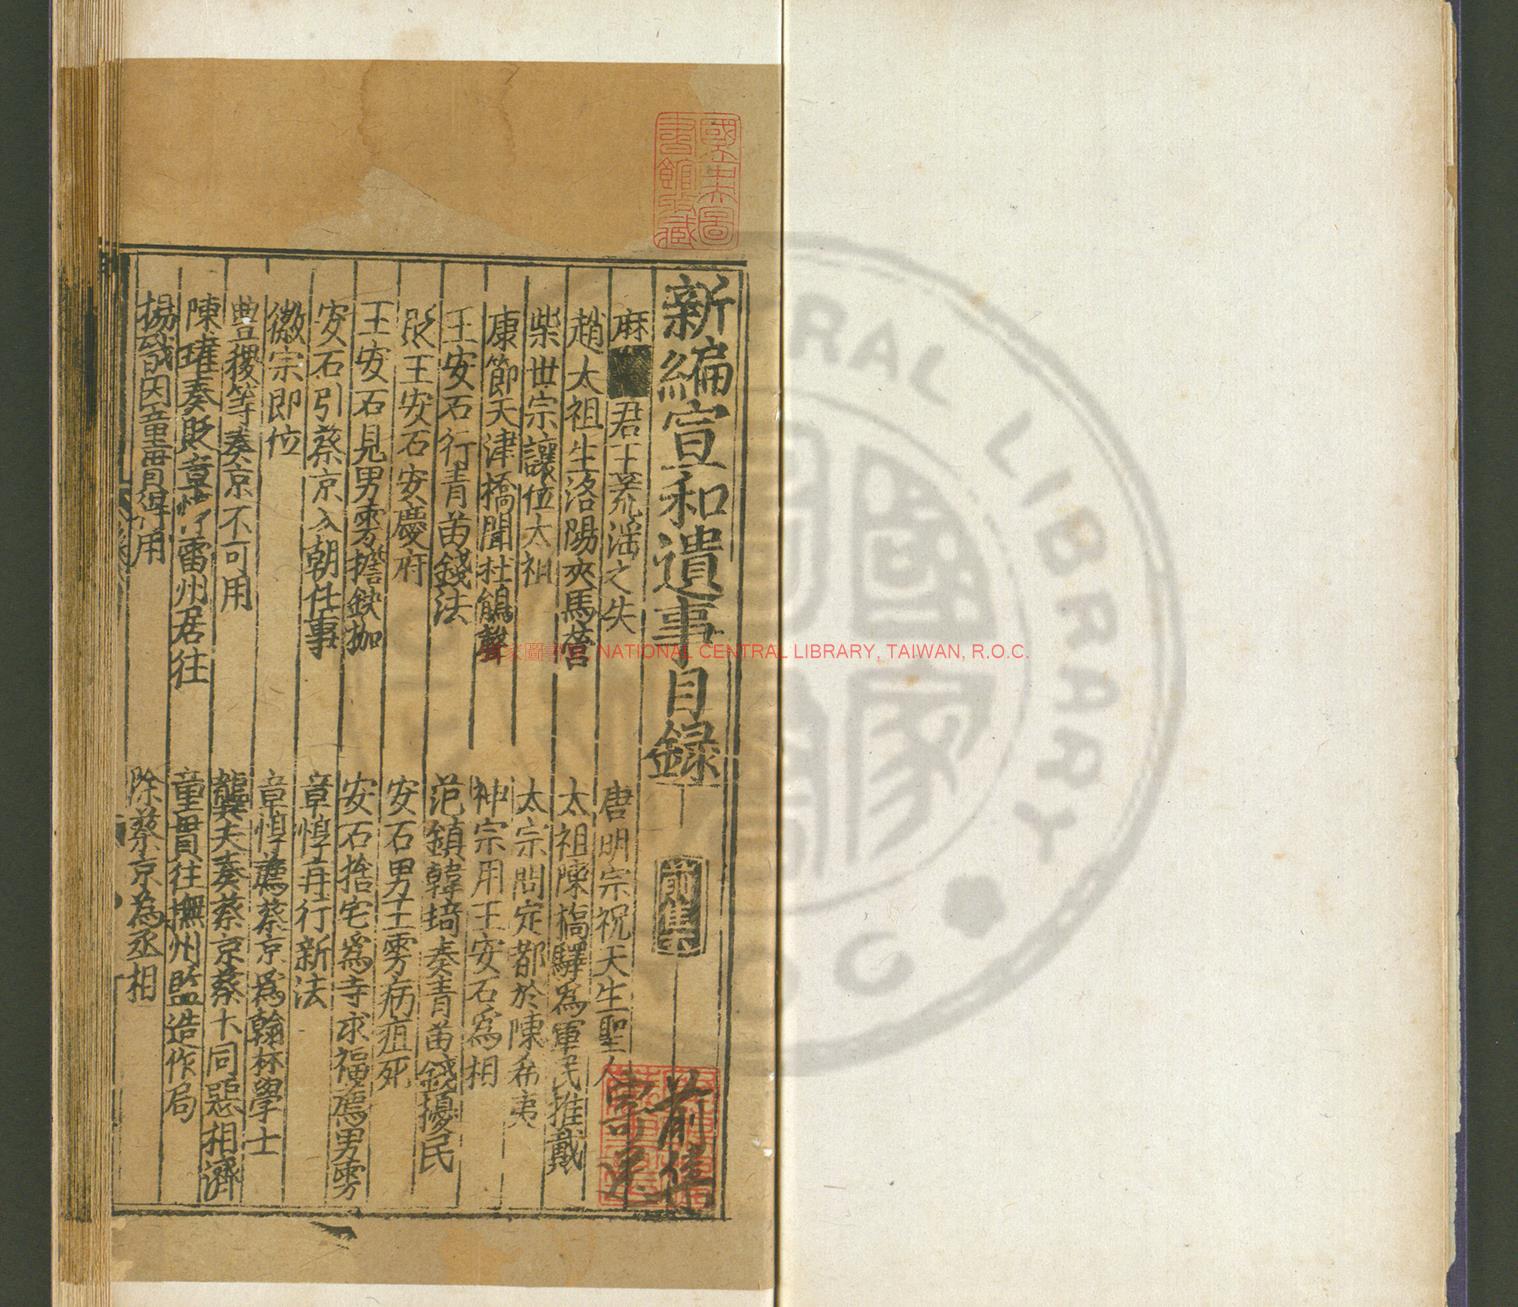 新編宣和遺事目録
前集
前集
麻 君王荒淫之失
唐明宗祝天生聖人
趙太祖生洛陽夾馬營
太祖陳橋驛為軍民推戴
柴世宗讓位太祖
太宗問定都於陳希夷
康節天津橋聞杜鵑聲
神宗用王安石為相
王安石行青苗錢法
范鎮韓琦奏青苗錢擾民
貶王安石安慶府
安石男王雱病疽死
王安石見男雱擔鉄枷
安石捨宅為寺求福薦男雱
安石引蔡京入朝任事
章惇再行新法
徽宗即位
章惇薦蔡京為翰林學士
豊稷等奏京不可用
龔夬奏蔡京蔡卞同惡相濟
陳瓘奏貶章惇 雷州居住
童貫往撫州監造作局
楊戩因童貫得用
除蔡京為丞相
國立中央圖書館收藏
國家圖書館 NATIONAL CENTRAL LIBRARY, TAIWAN, R.O.C.